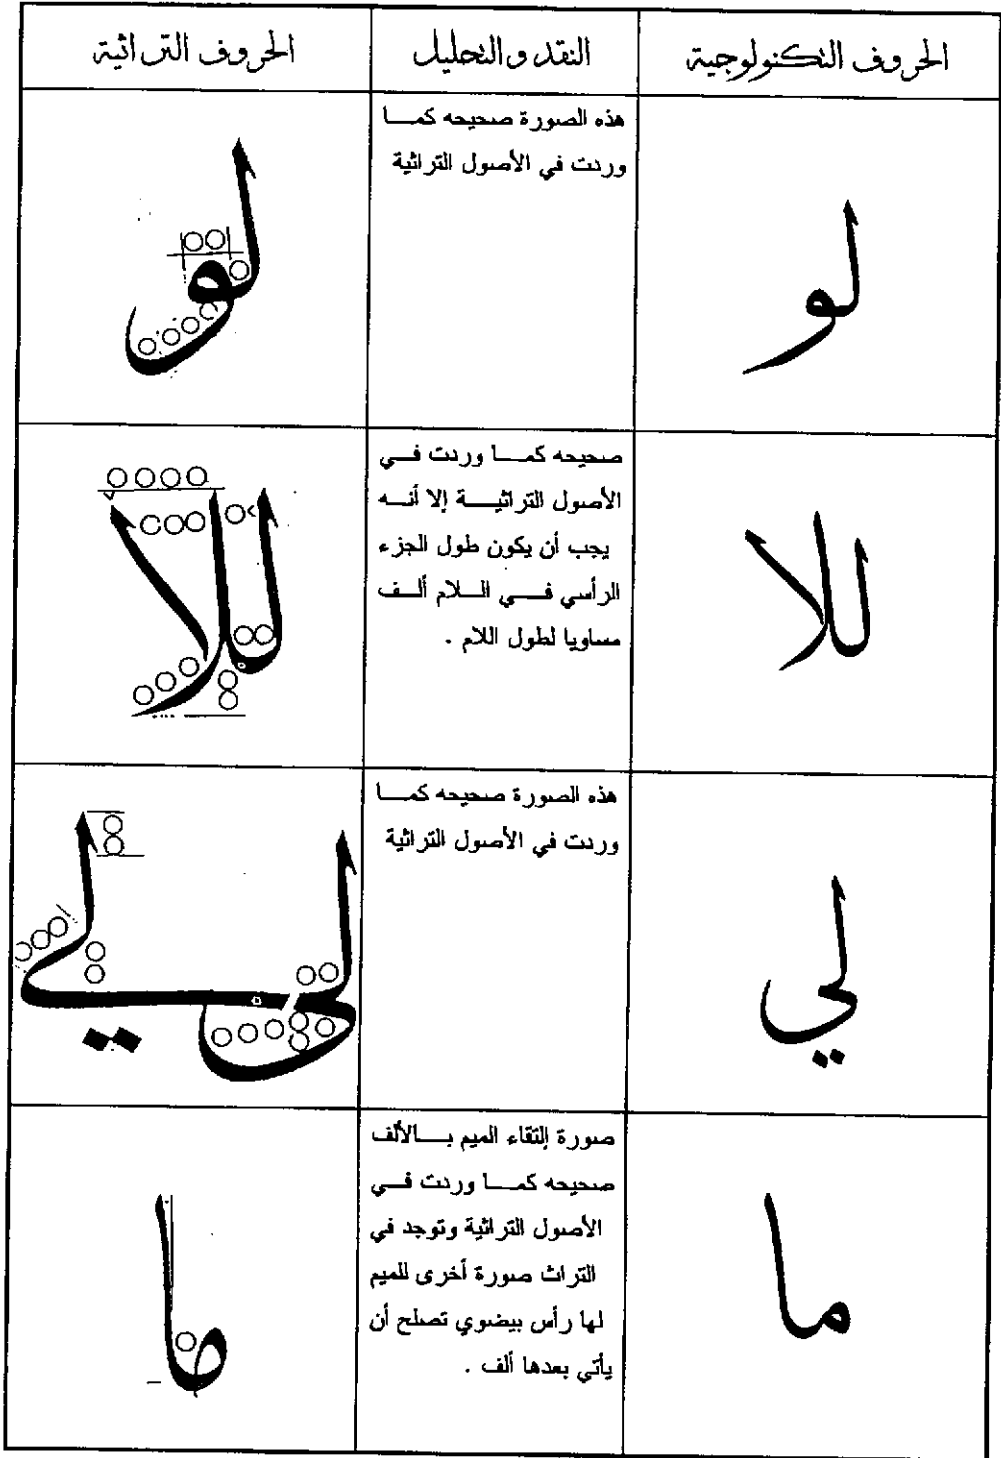 الحروف التكنولوجية
النقد والتحليل
الحروف التراثية
لو
هذه الصورة صحيحه كما
وردت في الأصول التراثية
لو
للا
صحيحه كما وردت في
الأصول التراثية إلا أنه
يجب أن يكون طول الجزء
الرأسي في اللام ألف
مساويا لطول اللام .
للا
لي
هذه الصورة صحيحه كما
وردت في الأصول التراثية
لي
ما
صورة إلتقاء الميم بالألف
صحيحه كما وردت في
الأصول التراثية وتوجد في
التراث صورة أخرى للميم
لها رأس بيضوي تصلح أن
يأتي بعدها ألف .
ما